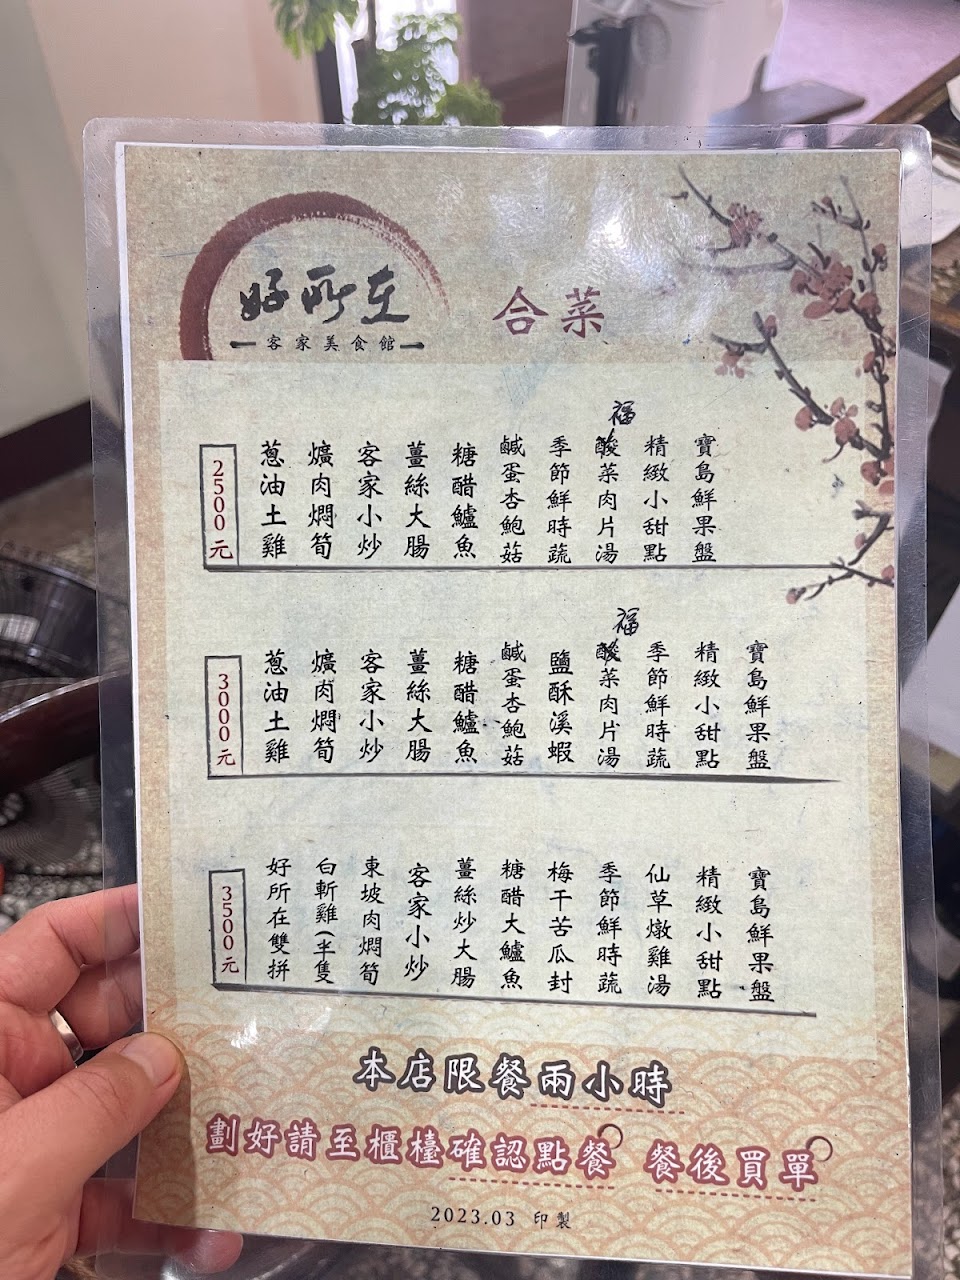 好所在
客家美食館
合菜
2500元
葱油土雞
爌肉焖筍
客家小炒
薑絲大腸
糖醋鱸魚
鹹蛋杏鮑菇
季節鮮時蔬
福
酸菜肉片湯
精緻小甜點
寶島鮮果盤
3000元
葱油土雞
爌肉焖筍
客家小炒
薑絲大腸
糖醋鱸魚
鹹蛋杏鮑菇
鹽酥溪蝦
福
酸菜肉片湯
季節鮮時蔬
精緻小甜點
寶島鮮果盤
3500元
好所在雙拼
白斬雞(半隻
東坡肉焖筍
客家小炒
薑絲炒大腸
糖醋大鱸魚
梅干苦瓜封
季節鮮時蔬
仙草燉雞湯
精緻小甜點
寶島鮮果盤
本店限餐兩小時
劃好請至櫃檯確認點餐。餐後買單。
2023.03 印製